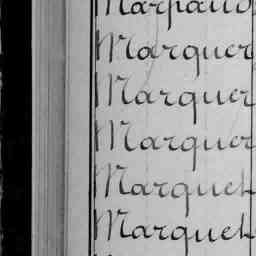 Marpaud
Marquer
Marquer
Marquer
Marquet
Marquet